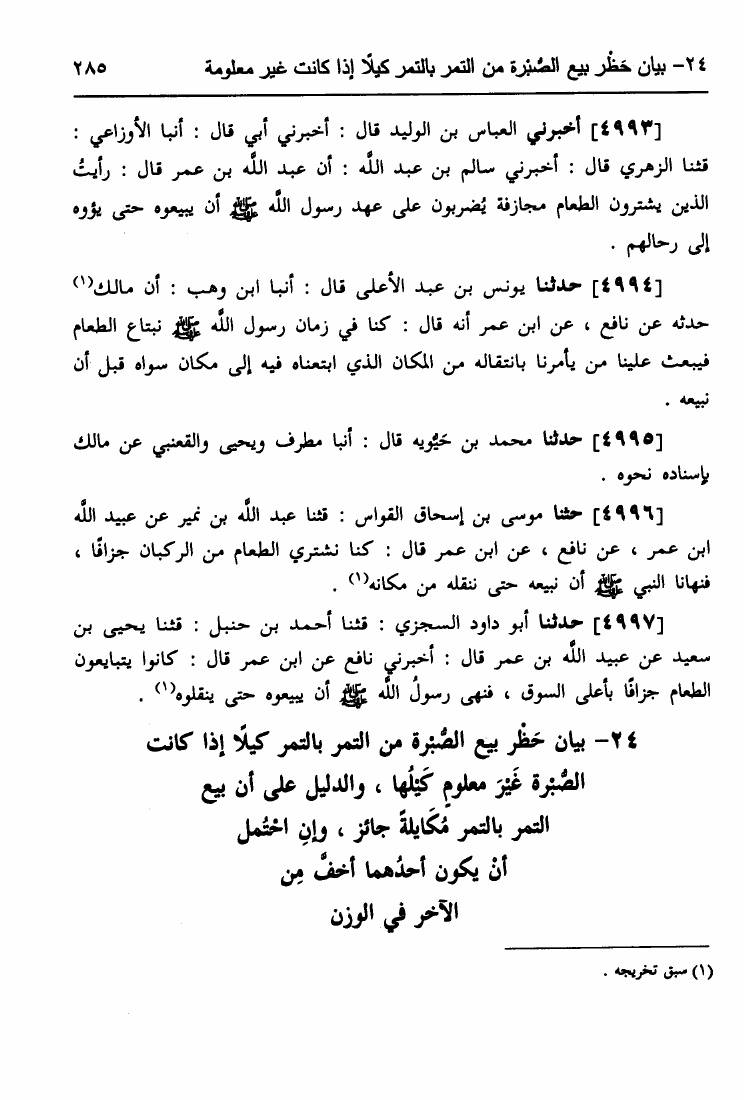 ٢٤- بيان حَظْر بيع الصُّبْرة من التمر بالتمر كيلًا إذا كانت غير معلومة ٢٨٥
[٤٩٩٣] أخبرني العباس بن الوليد قال : أخبرني أبي قال : أنبا الأوزاعي :
قثنا الزهري قال : أخبرني سالم بن عبد اللَّه : أن عبد اللَّه بن عمر قال : رأيتُ
الذين يشترون الطعام مجازفة يُضربون على عهد رسول اللَّه ﷺ أن يبيعوه حتى يؤوه
إلى رحالهم .
[٤٩٩٤] حدثنا يونس بن عبد الأعلى قال : أنبا ابن وهب : أن مالك(١)
حدثه عن نافع ، عن ابن عمر أنه قال : كنا في زمان رسول اللَّه ﷺ نبتاع الطعام
فيبعث علينا من يأمرنا بانتقاله من المكان الذي ابتعناه فيه إلى مكان سواه قبل أن
نبيعه .
[٤٩٩٥] حدثنا محمد بن حَيُّويه قال : أنبا مطرف ويحيى والقعنبي عن مالك
بإسناده نحوه .
[٤٩٩٦] حثنا موسى بن إسحاق القواس : قثنا عبد اللَّه بن نمير عن عبيد اللَّه
ابن عمر ، عن نافع ، عن ابن عمر قال : كنا نشتري الطعام من الركبان جزافًا ،
فنهانا النبي ﷺ أن نبيعه حتى ننقله من مكانه(١) .
[٤٩٩٧] حدثنا أبو داود السجزي : قثنا أحمد بن حنبل : قثنا يحيى بن
سعيد عن عبيد اللَّه بن عمر قال : أخبرني نافع عن ابن عمر قال : كانوا يتبايعون
الطعام جزافًا بأعلى السوق ، فنهى رسولُ اللَّه ﷺ أن يبيعوه حتى ينقلوه(١) .
٢٤- بيان حَظْر بيع الصُّبْرة من التمر بالتمر كيلًا إذا كانت
الصُّبْرة غَيْرَ معلومٍ كَيْلُها ، والدليل على أن بيع
التمر بالتمر مُكَايلةً جائز ، وإنِ احْتُمل
أنْ يكون أحدُهما أخفَّ مِن
الآخر في الوزن
(١) سبق تخريجه .